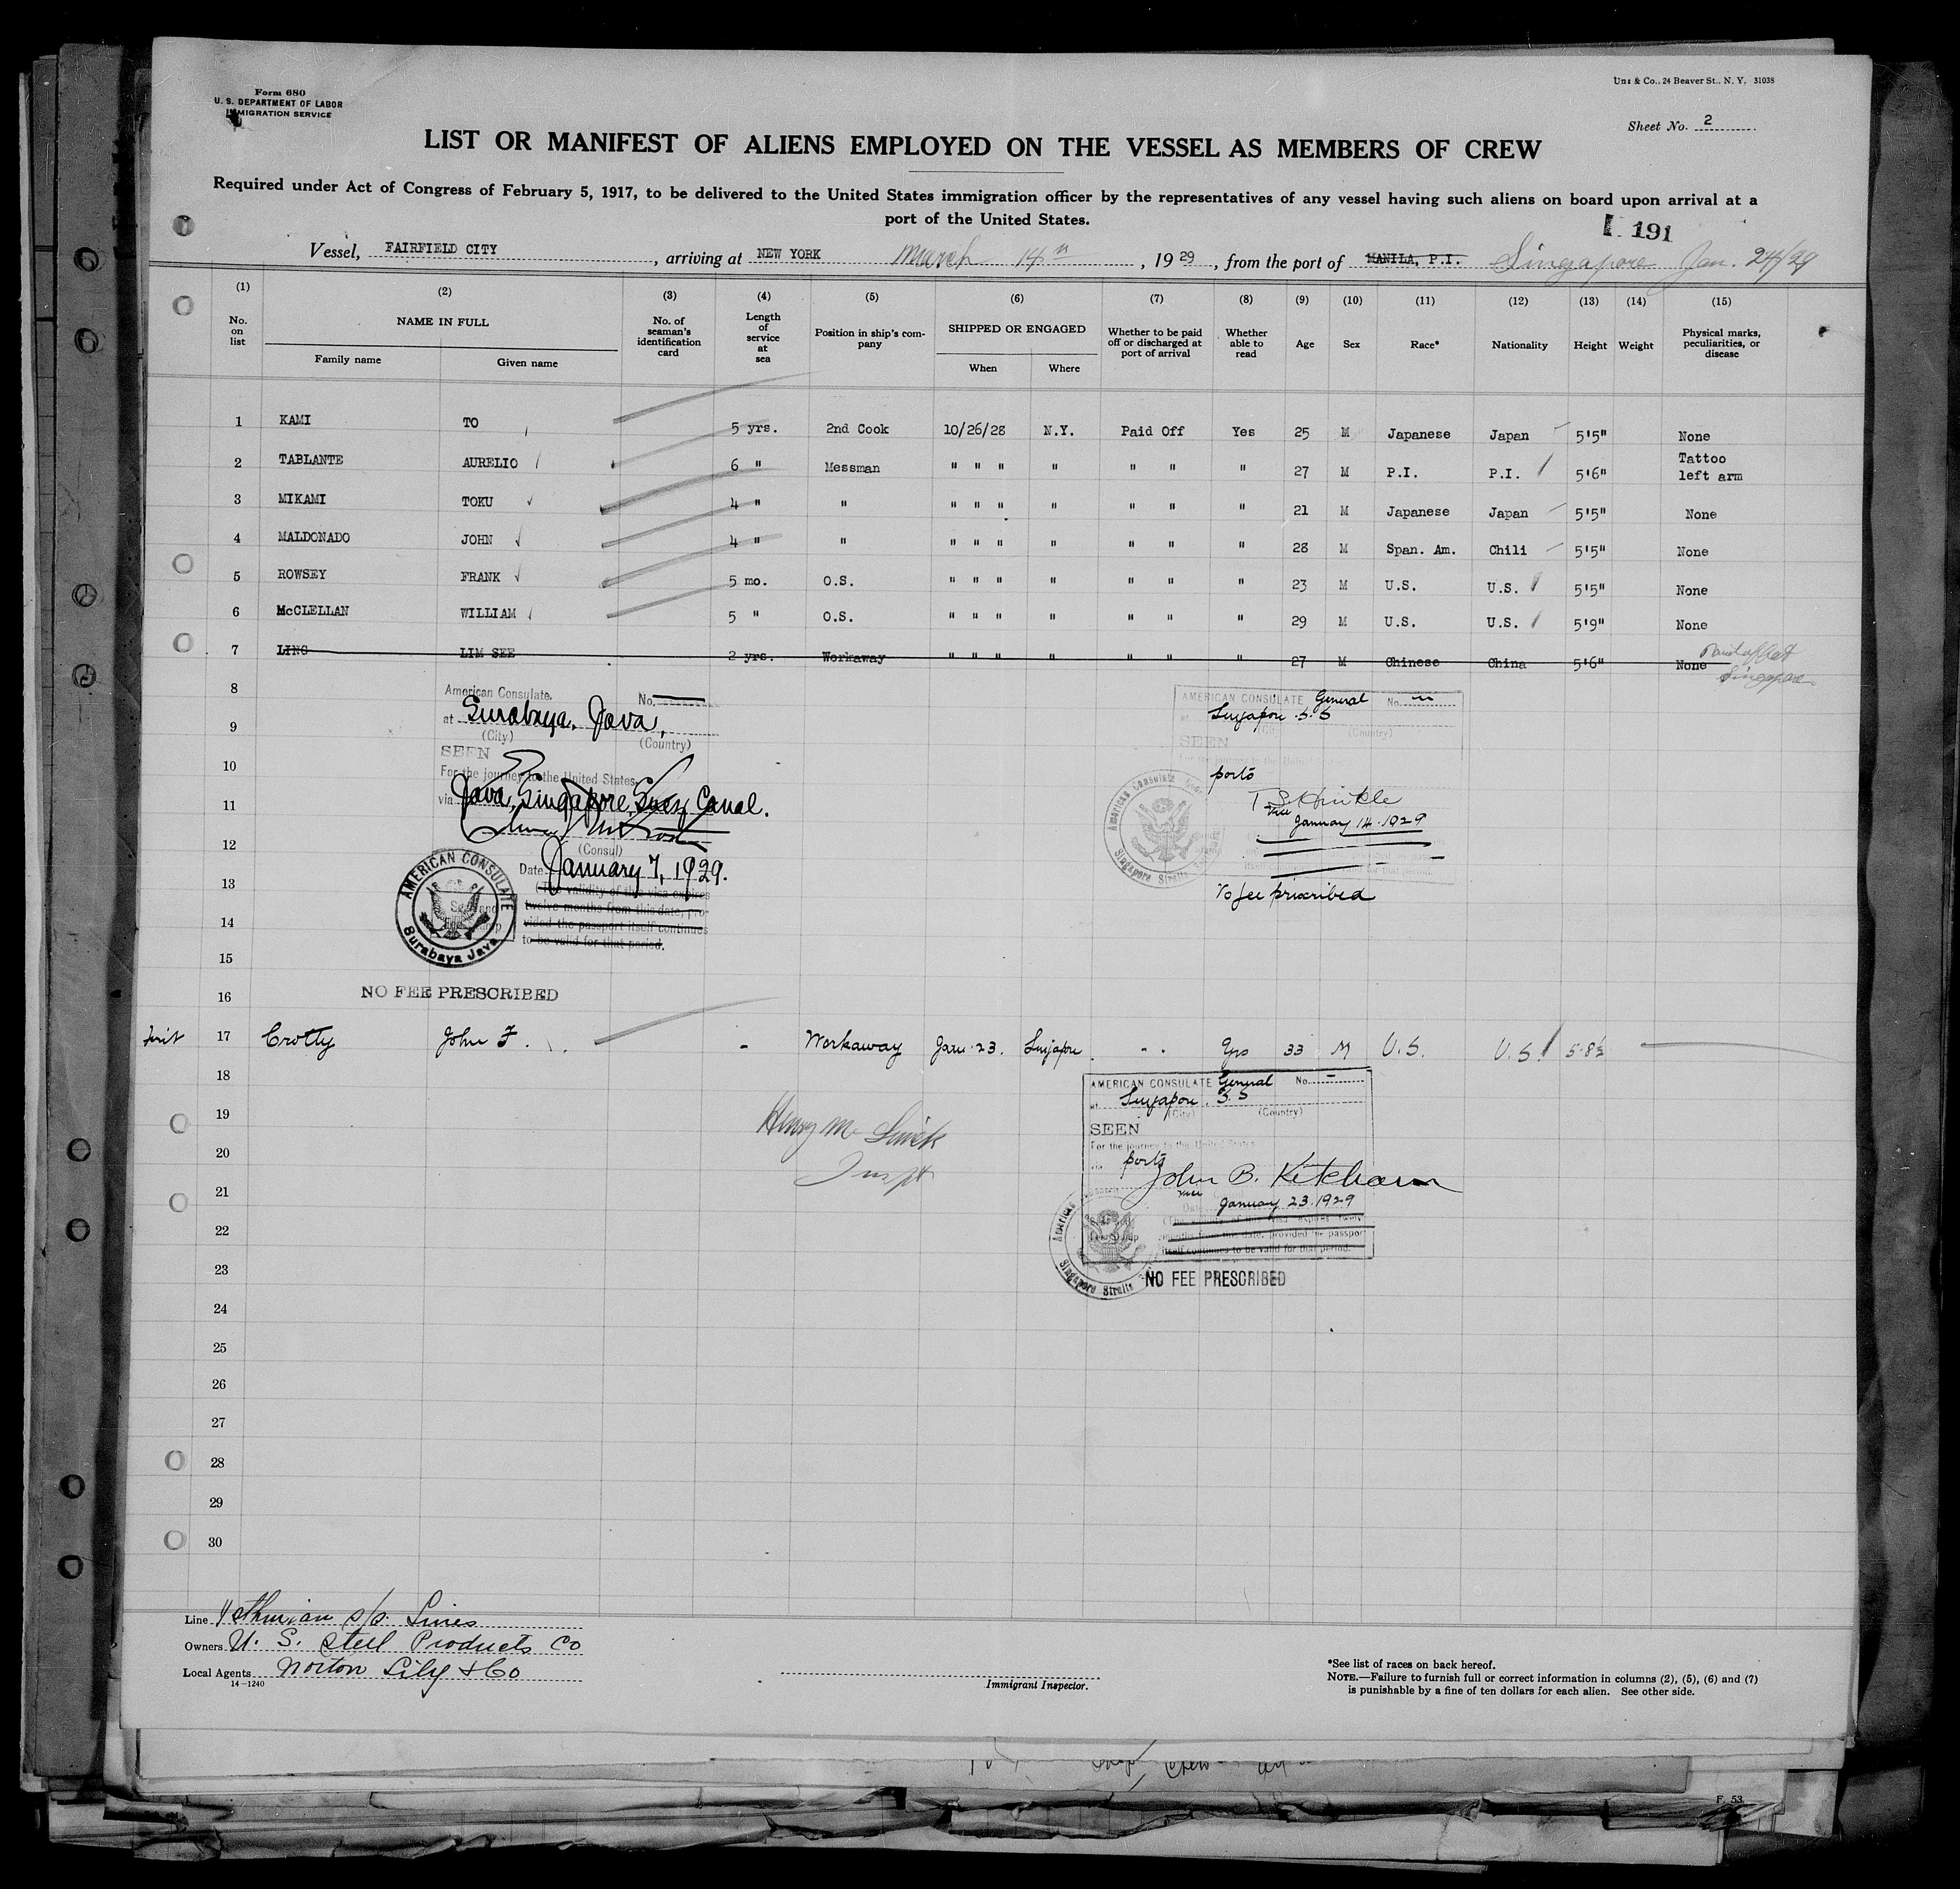 Form 680
U. S. DEPARTMENT OF LABOR
IMMIGRATION SERVICE
Uns & Co., 24 Beaver St., N. Y. 31038
Sheet No. 2
LIST OR MANIFEST OF ALIENS EMPLOYED ON THE VESSEL AS MEMBERS OF CREW
Required under Act of Congress of February 5, 1917, to be delivered to the United States immigration officer by the representatives of any vessel having such aliens on board upon arrival at a
port of the United States.
191
Vessel, FAIRFIELD CITY, arriving at NEW YORK March 14th, 1929, from the port of MANILA, P.I. Singapore Jan. 24/29
(1) (2) (3) (4) (5) (6) (7) (8) (9) (10) (11) (12) (13) (14) (15)
No. on list
NAME IN FULL
Family name Given name
No. of seaman's identification card
Length of service at sea
Position in ship's company
SHIPPED OR ENGAGED
When Where
Whether to be paid off or discharged at port of arrival
Whether able to read
Age Sex Race* Nationality Height Weight
Physical marks, peculiarities, or disease
1 KAMI TO 5 yrs. 2nd Cook 10/26/28 N.Y. Paid Off Yes 25 M Japanese Japan 5'5" None
2 TABLANTE AURELIO 6 " Messman " " " " " " " 27 M P.I. P.I. 5'6" Tattoo left arm
3 MIKAMI TOKU 4 " " " " " " " " " 21 M Japanese Japan 5'5" None
4 MALDONADO JOHN 4 " " " " " " " " " 28 M Span. Am. Chili 5'5" None
5 ROWSEY FRANK 5 mo. O.S. " " " " " " " 23 M U.S. U.S. 5'5" None
6 McCLELLAN WILLIAM 5 " O.S. " " " " " " " 29 M U.S. U.S. 5'9" None
7 LING LIM SEE 2 yrs. Workaway " " " " " " " 27 M Chinese China 5'6" None
Paid off at Singapore
8
9
10
11
12
13
14
15
16
American Consulate, No.
at Surabaya, Java,
(City) (Country)
SEEN
For the journey to the United States
via Java, Singapore, Suez Canal.
(Consul)
Date January 7, 1929.
(The validity of this visa expires
twelve months from this date, pro-
vided the passport itself continues
to be valid for that period.
AMERICAN CONSULATE
Surabaya Java
NO FEE PRESCRIBED
AMERICAN CONSULATE General No.
at Singapore S.S
(City) (Country)
SEEN
For the journey to the United States
ports
T S Hinkle
January 14. 1929
American Consulate
Singapore Straits
No fee prescribed
17 Crotty John F. - Workaway Jan. 23. Singapore. " " Yes 33 M U.S. U.S. 5.8½
18
19
20
21
22
23
24
25
26
27
28
29
30
AMERICAN CONSULATE General No. -
at Singapore S.S
(City) (Country)
SEEN
For the journey to the United States
via ports
John B. Ketcham
Date January 23. 1929
(The validity of this visa expires twelve
months from this date, provided the passport
itself continues to be valid for that period.
Singapore Straits
NO FEE PRESCRIBED
Inspt
Line Isthmian S/S. Lines
Owners U. S. Steel Products Co
Local Agents Norton Lilly & Co
14—1240
Immigrant Inspector.
*See list of races on back hereof.
NOTE.—Failure to furnish full or correct information in columns (2), (5), (6) and (7)
is punishable by a fine of ten dollars for each alien. See other side.
F. 53